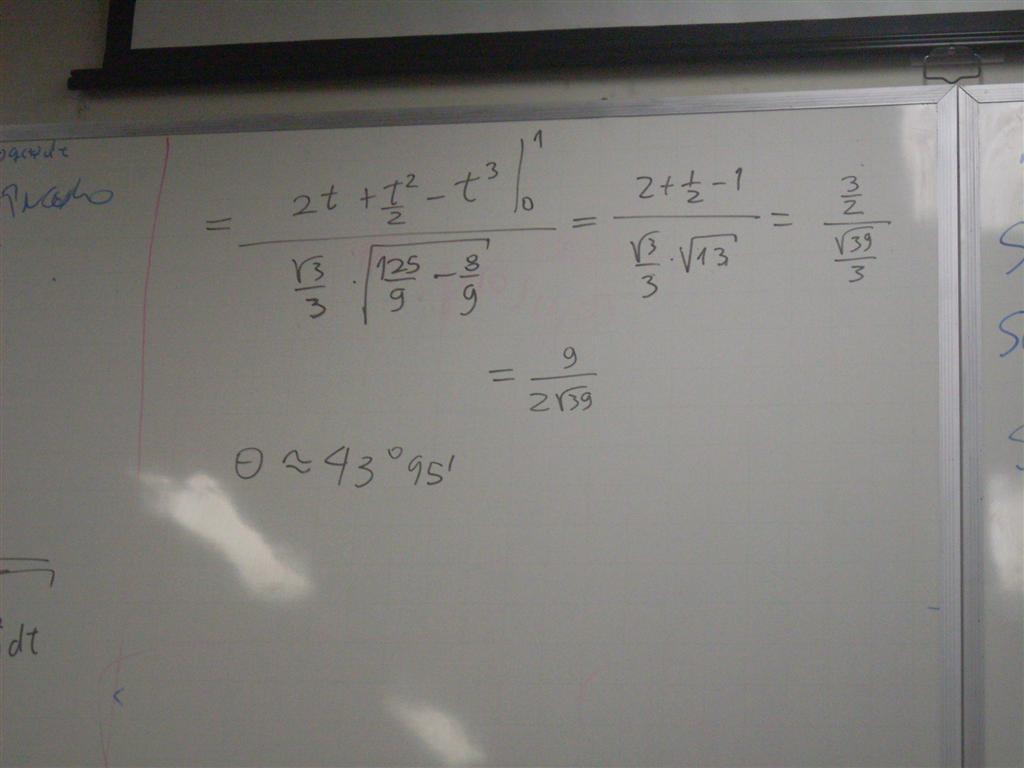 = (2t + t²/2 - t³ |₀¹) / (√3/3 · √(125/9 - 8/9)) = (2 + 1/2 - 1) / (√3/3 · √13) = (3/2) / (√39/3)
= 9 / (2√39)
θ ≈ 43° 95'
dt